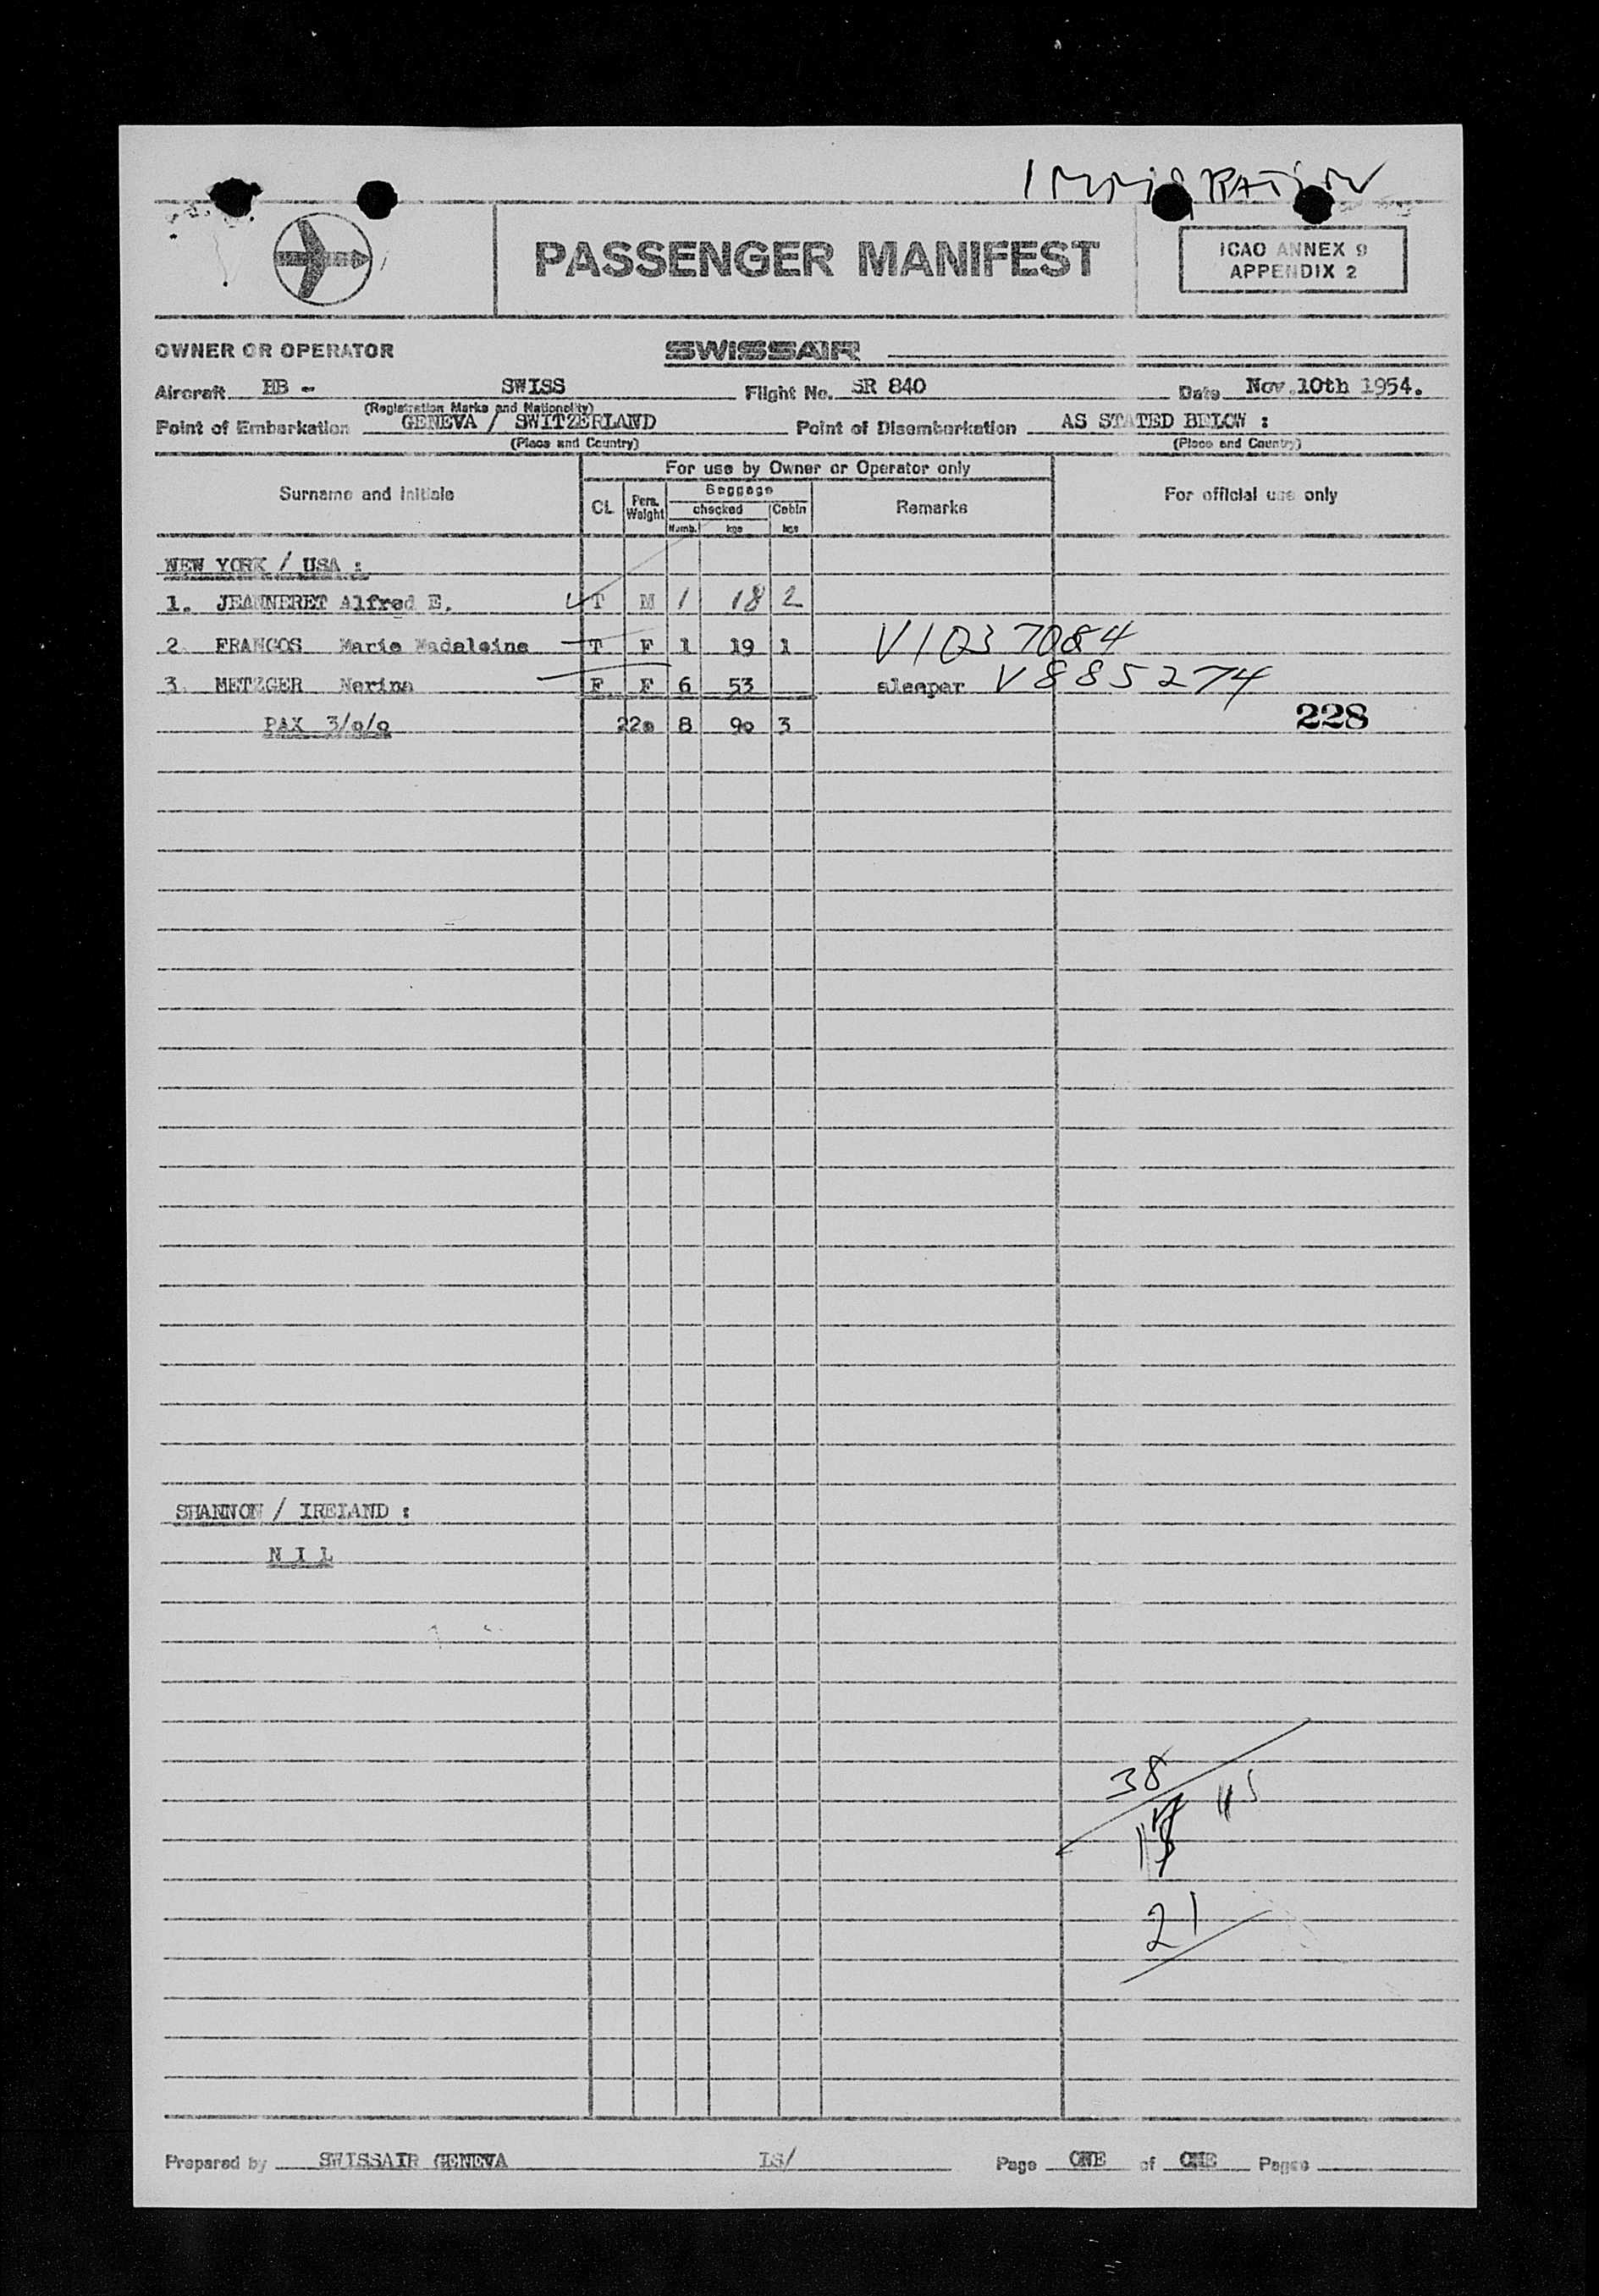 IMMIGRATION
PASSENGER MANIFEST
ICAO ANNEX 9
APPENDIX 2
OWNER OR OPERATOR SWISSAIR
Aircraft HB - SWISS Flight No. SR 840 Date Nov.10th 1954.
(Registration Marks and Nationality)
Point of Embarkation GENEVA / SWITZERLAND Point of Disembarkation AS STATED BELOW :
(Place and Country) (Place and Country)
For use by Owner or Operator only
Surname and initials CL Pers. Weight Baggage checked Numb. kgs Cabin kgs Remarks For official use only
NEW YORK / USA :
1. JEANNERET Alfred E. T M 1 18 2
2. FRANCOS Marie Madaleine T F 1 19 1 V1037084
3. METZGER Nerina F F 6 53 sleeper V885274
PAX 3/o/o 22o 8 9o 3 228
SHANNON / IRELAND :
N I L
38
21
Prepared by SWISSAIR GENEVA LS/ Page ONE of ONE Pages